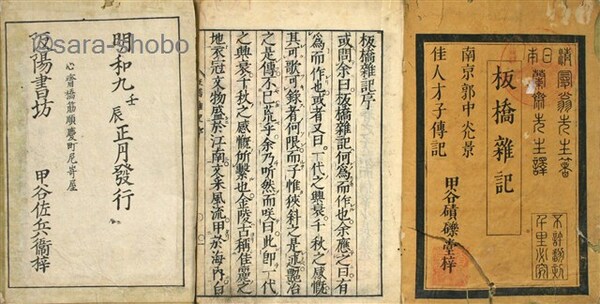 清曼翁先生著
日本蘭齋先生譯
板橋雜記
南京郭中光景
佳人才子傳記
甲谷磧礫堂梓
不許翻刻
千里必究
板橋雜記序
或問余曰板橋雜記何爲而作也余應之曰有
爲而作也或者又曰一代之興衰千秋之感慨
其可歌可錄者何限而子惟狹斜之是述艷冶
之是傳不已荒乎余乃听然而咲曰此即一代
之興衰千秋之感慨所繫也金陵古稱佳麗之
地衣冠文物盛於江南文采風流甲於海內白
明和九壬辰正月發行
心齋橋筋順慶町尼﨑屋
阪陽書坊 甲谷佐兵衞梓
@sara-shobo